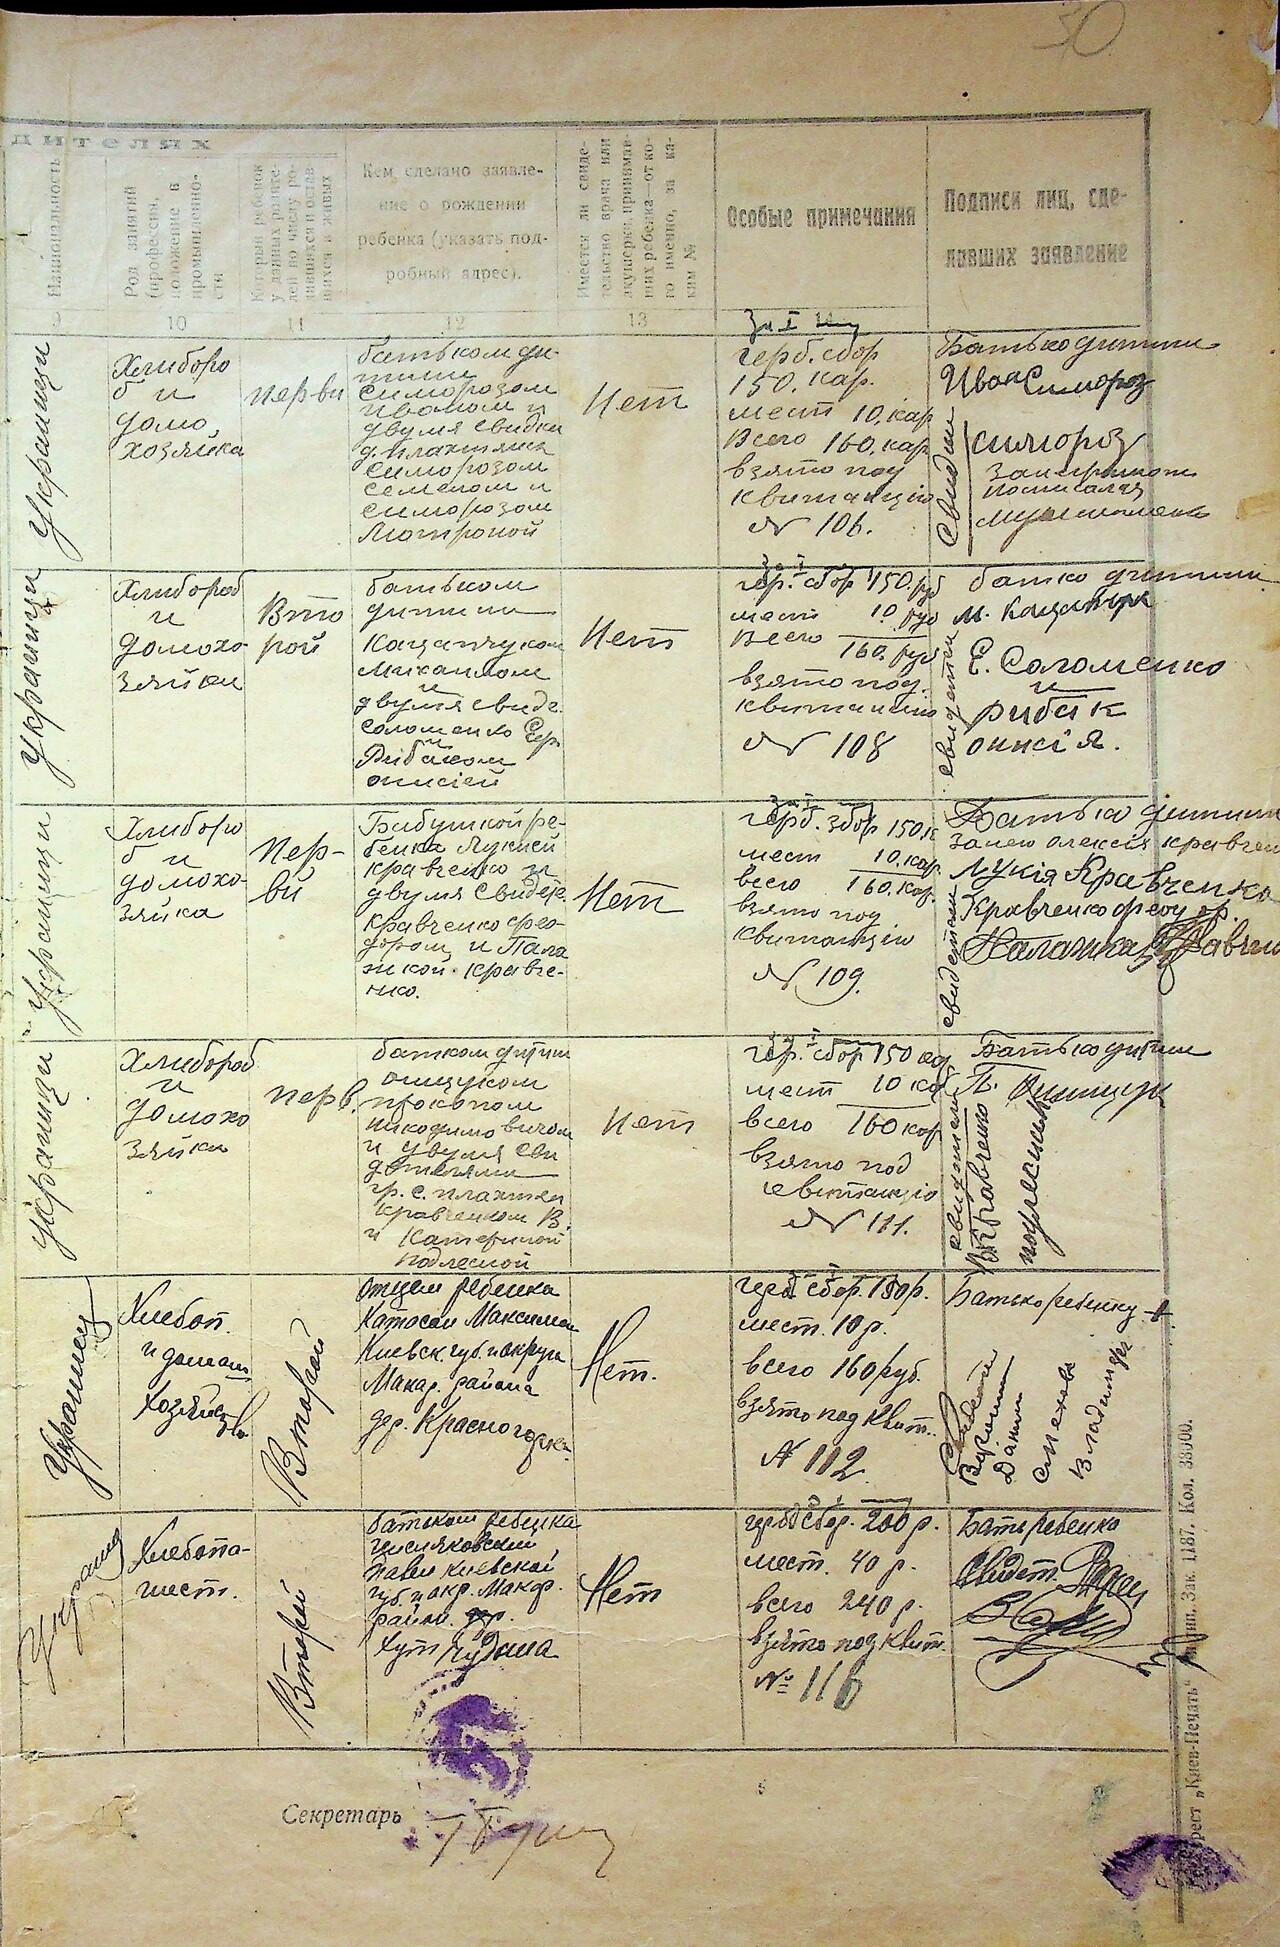 50
дителях
Национальность
Род занятий
(профессия,
положение в
промышленно-
сти
Который ребенок
у данных родите-
лей по числу ро-
дившихся и остав
шихся в живых
Кем сделано заявле-
ние о рождении
ребенка (указать под-
робный адрес).
Имеется ли свиде-
тельство врача или
акушерки, принимав-
ших ребенка—от ко-
го именно, за ка-
ким №
Особые примечания
Подписи лиц, сде-
лавших заявление
9
10
11
12
13
Украинци
Хлиборо
б и
домо,
хозяйка
перви
батьком ди-
тини
Симорозом
Иваном и
двумя свидки
д. Плахтянка
Симорозом
Семеном и
Симорозом
Мотроной
Нет
герб. сбор
150. кар.
мест 10. кар
Всего 160. кар
взято под
квитанцію
№ 106.
Батько дитини
Иван Симороз
свидки
симороз
Украинци
Хлибороб
и
домохо-
зяйки
Вто
рой
батьком
дитини
Кацапчуком
Михаилом
и
двумя свиде.
Соломенко Єфр.
и
Рибаком
онисией
Нет
гер. сбор 150. руб
мест 10 руб
Всего 160. руб
взято под.
квитанцию
№ 108
батко дитини
М. Кацапчук
свидетели
Є. Соломенко
и
рибак
онисія.
Украинци
Хлиборо
б и
домохо-
зяйка
Пер-
вй
Бабушкой ре-
бенка Лукией
Кравченко и
двумя свидет.
Кравченко фео-
дором и Пала
жкой Кравче-
нко.
Нет
герб. збор 150. к
мест 10. кар.
всего 160. кар.
взято под
квитанцію
№ 109.
Батько дитини
Лукія Кравченко
свидетели
Кравченко феодор.
Палажка Кравчен
Украинци
Хлибороб
и
домохо
зяйка
перв.
батком дитини
онищуком
прокопом
никодимовичом
и двумя сви
детелями
гр. с. плахтян
Кравченком В.
и Катериной
подлесной
Нет
гер. сбор 150 кар
мест 10 кар
всего 160 кар
взято под
квитанцію
№ 111.
Батько дитини
П. Онищук
свидетели
В Кравченко
подлесная
Украинец
Хлебоп.
и домаш
хозяйств
Второй
отцем ребенка
Катосам Максимом
Киевск. губ. и округа
Макар. района
дер. Красногорка
Нет.
герб сбор. 150 р.
мест. 10 р.
всего 160 руб.
взято под квит.
№ 112
Батько ребенку +
Свидет
Данил
Владимир
Украинец
Хлебопа-
шест.
Второй
батьком ребенка
киевской
губ. и окр. Макар.
район.
хут.
Нет
герб сбор. 200 р.
мест. 40 р.
всего 240 р.
взято под квит.
№ 116
Бать ребенко
Свидет.
Секретарь
трест „Киев-Печать“ Зак. 1187. Кол. 38000.